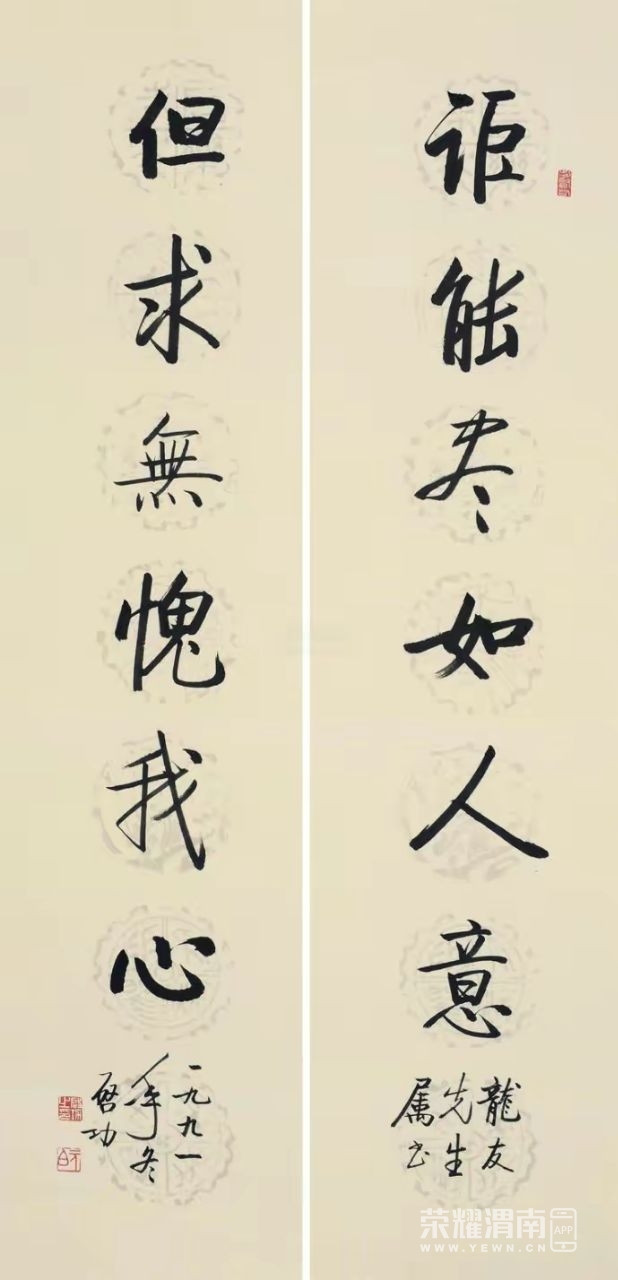 讵能尽如人意
龍友
先生
属书
但求無愧我心
一九九一
年冬
启功
荣耀渭南
APP
WWW.YEWN.CN